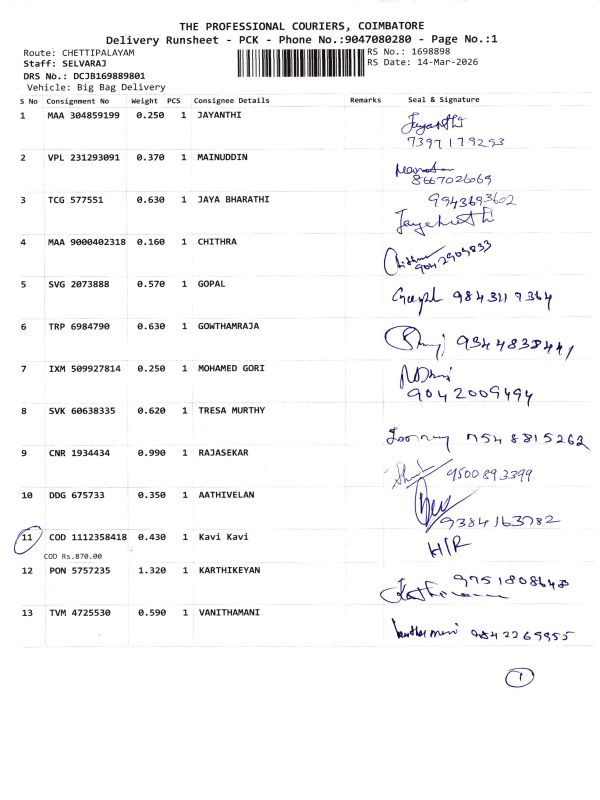 THE PROFESSIONAL COURIERS, COIMBATORE
Delivery Runsheet - PCK - Phone No.:9047080280 - Page No.:1
Route: CHETTIPALAYAM RS No.: 1698898
Staff: SELVARAJ RS Date: 14-Mar-2026
DRS No.: DCJB169889801
Vehicle: Big Bag Delivery
S No Consignment No Weight PCS Consignee Details Remarks Seal & Signature
1 MAA 304859199 0.250 1 JAYANTHI Jayanthi
7397179293
2 VPL 231293091 0.370 1 MAINUDDIN
8667026069
3 TCG 577551 0.630 1 JAYA BHARATHI 9943693602
4 MAA 9000402318 0.160 1 CHITHRA Chithra
9042909833
5 SVG 2073888 0.570 1 GOPAL Gopal 9843117364
6 TRP 6984790 0.630 1 GOWTHAMRAJA 9344838441
7 IXM 509927814 0.250 1 MOHAMED GORI
9042009494
8 SVK 60638335 0.620 1 TRESA MURTHY 7548815262
9 CNR 1934434 0.990 1 RAJASEKAR 9500893399
10 DDG 675733 0.350 1 AATHIVELAN
9384163782
11 COD 1112358418 0.430 1 Kavi Kavi H/R
COD Rs.870.00
12 PON 5757235 1.320 1 KARTHIKEYAN 9751808648
13 TVM 4725530 0.590 1 VANITHAMANI 9842269955
1